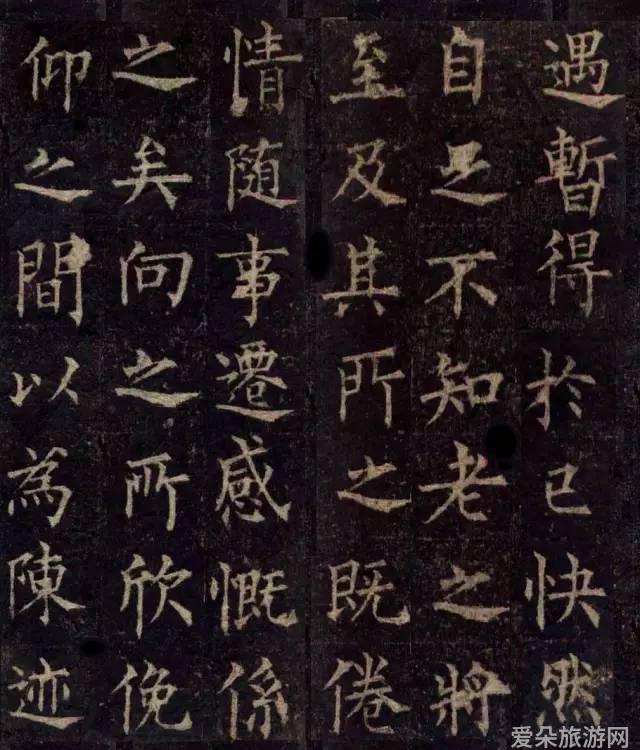 遇暫得於己快然
自足不知老之將
至及其所之既倦
情随事遷感慨係
之矣向之所欣俛
仰之間以為陳迹
爱朵旅游网